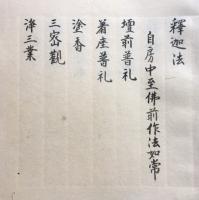 釋迦法
自房中至佛前作法如常
壇前普礼
着座普礼
塗香
三密觀
淨三業